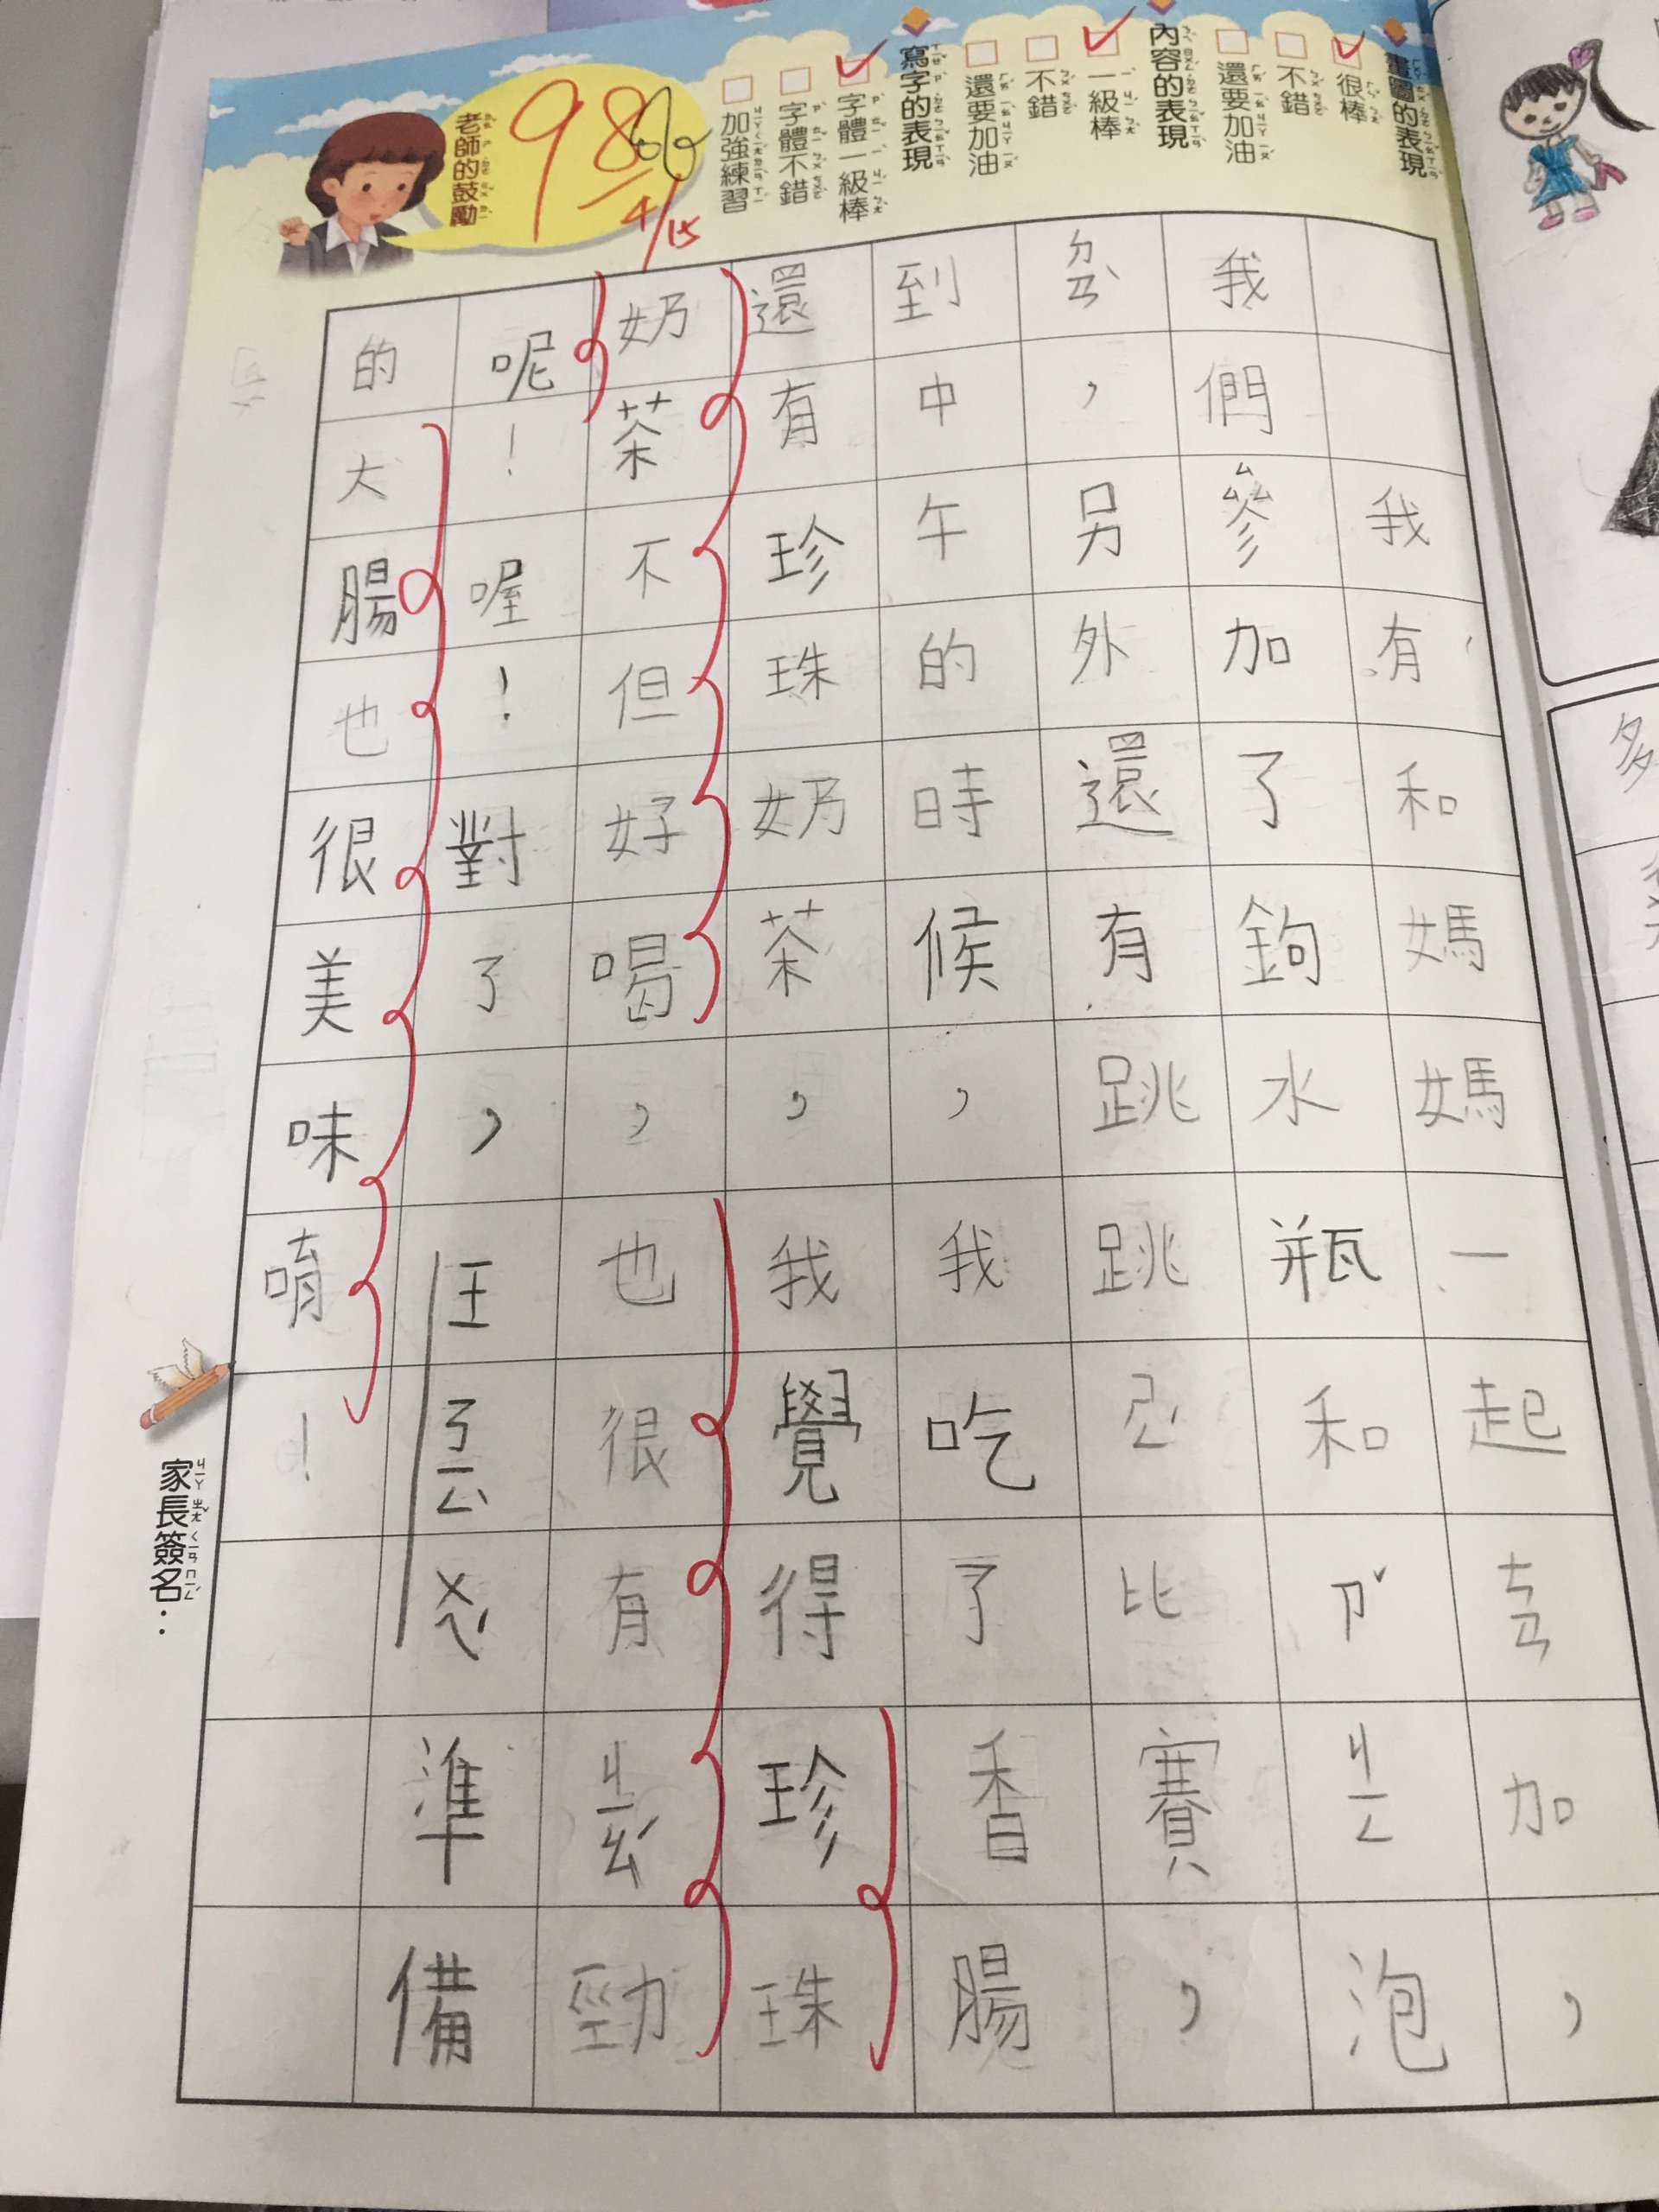 畫圖的表現
很棒
不錯
還要加油
內容的表現
一級棒
不錯
還要加油
寫字的表現
字體一級棒
字體不錯
加強練習
老師的鼓勵
98
4/15
我有和媽媽一起ㄘㄢ加，
我們參加了鉤水瓶和ㄗˇㄐㄧㄥ泡
ㄉㄢˋ，另外還有跳跳比賽，
到中午的時候，我吃了香腸
還有珍珠奶茶，我覺得珍珠
奶茶不但好喝，也很有ㄐㄧㄠˊ勁
呢！喔！對了，王ㄋㄧㄥˊㄨㄟˋ準備
的大腸也很美味唷！
家長簽名：
多